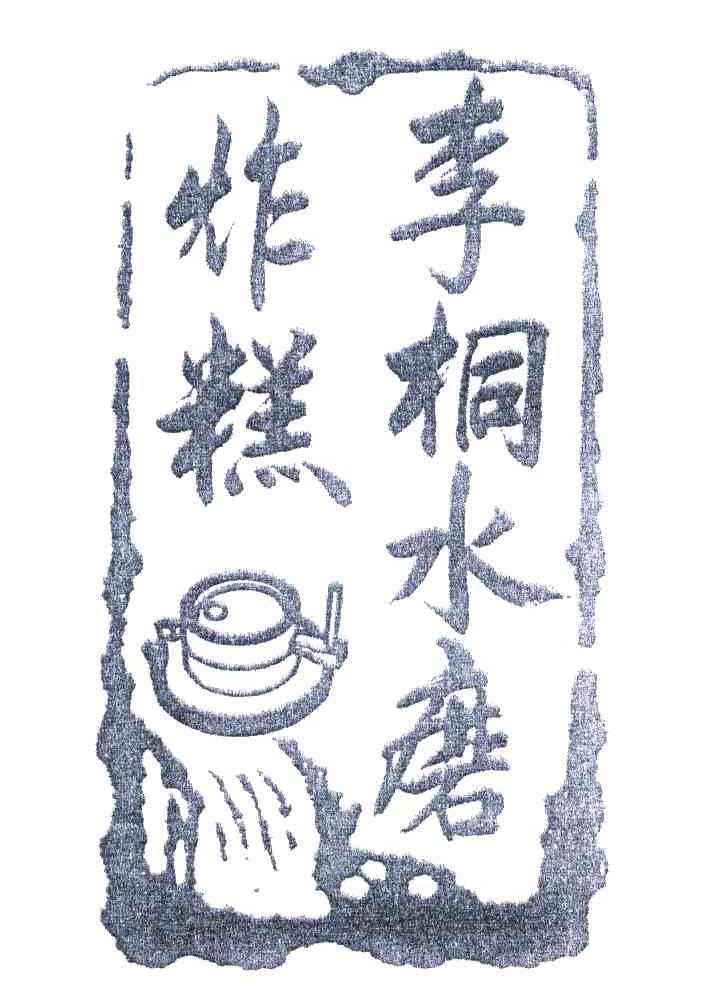 李桐水磨
炸糕